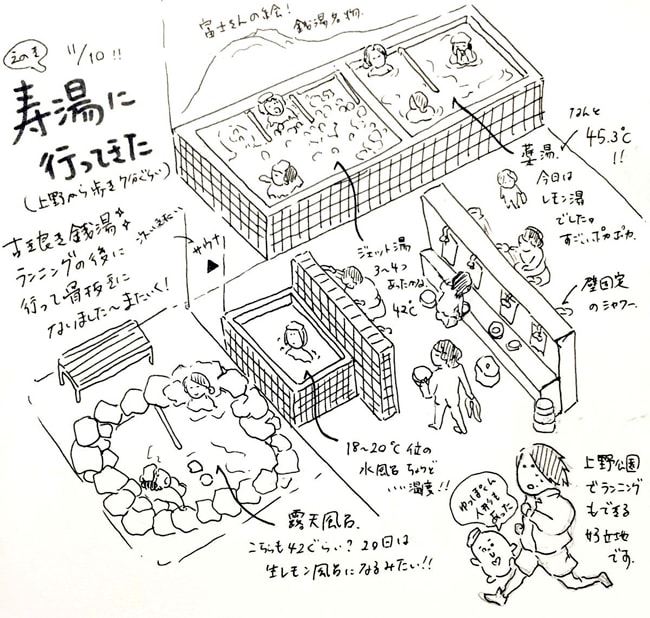 富士さんの絵!
銭湯名物.
えのき
11/10!!
寿湯に
行ってきた
(上野から歩き7分ぐらい)
古き良き銭湯
ランニングの後に
行って骨抜きに
なりました〜またいく!
サウナ
ジェット湯
3〜4つ
あったかな.
42℃
薬湯.
なんと
45.3℃
!!
今日は
レモン湯
でした。
すごいポカポカ.
壁固定
のシャワー.
18〜20℃位の
水風呂 ちょうど
いい温度!!
露天風呂.
こちらも42ぐらい?20日は
生レモン風呂になるみたい!!
ゆっぽくん
人形も
あった
上野公園
でランニング
もできる
好立地
です.